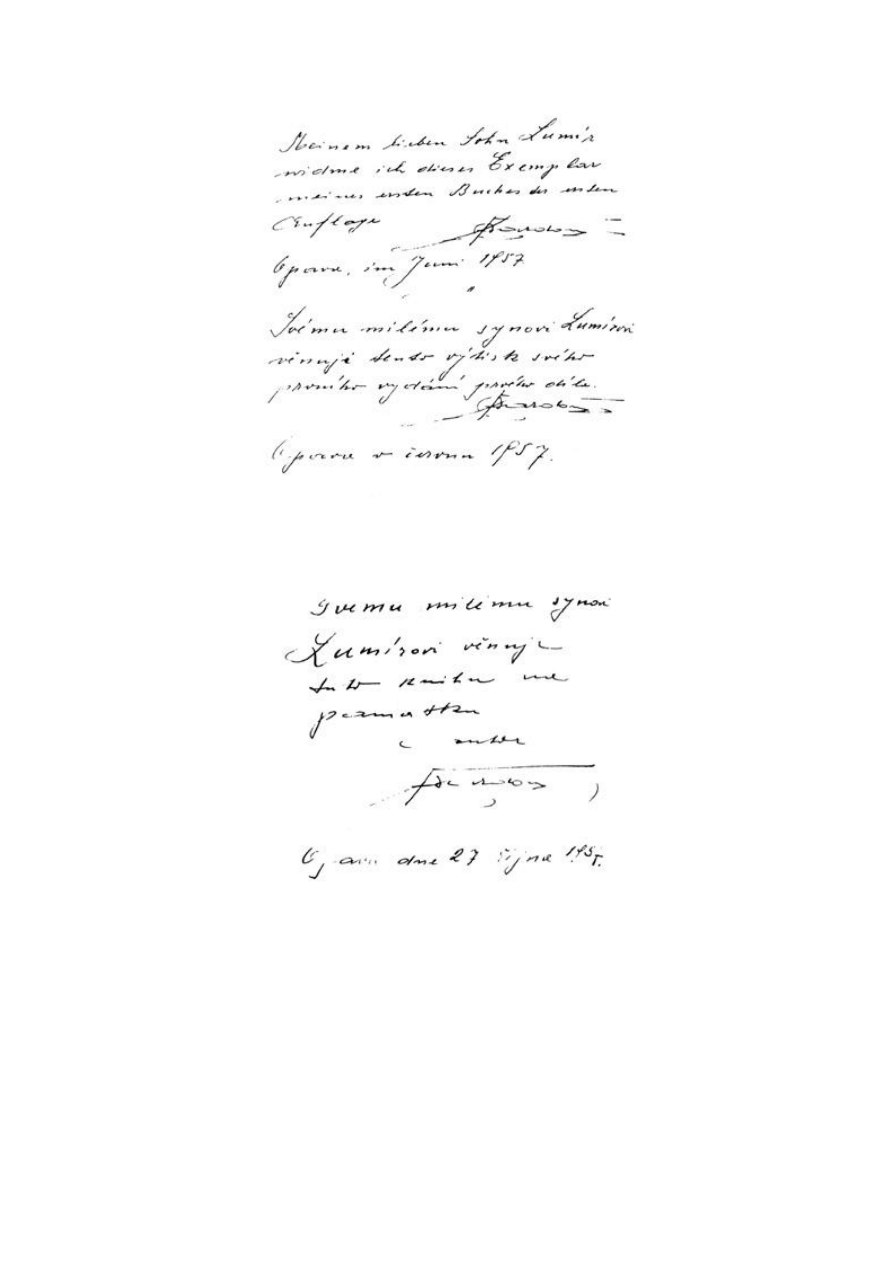 Meinem lieben Sohn Lumír
widme ich dieses Exemplar
meines ersten Buches der ersten
Auflage
Opava, im Juni 1957
Svému milému synovi Lumírovi
věnuji tento výtisk svého
prvního vydání prvého díla.
Opava v červnu 1957.
Svemu milému synovi
Lumírovi věnuje
tuto knihu na
pamatku
autor
Opava dne 27 října